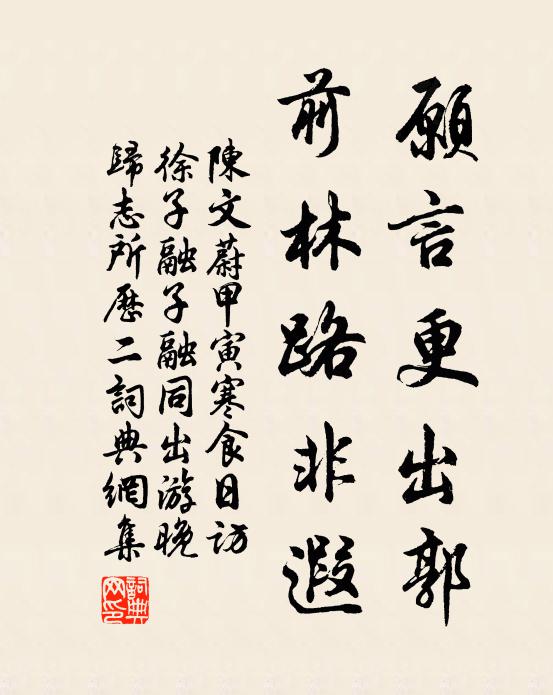 願言更出郭
前林路非遐
陳文蔚甲寅寒食日訪
徐子融子融同出游晚
歸志所歷二詞典網集
詞典網印